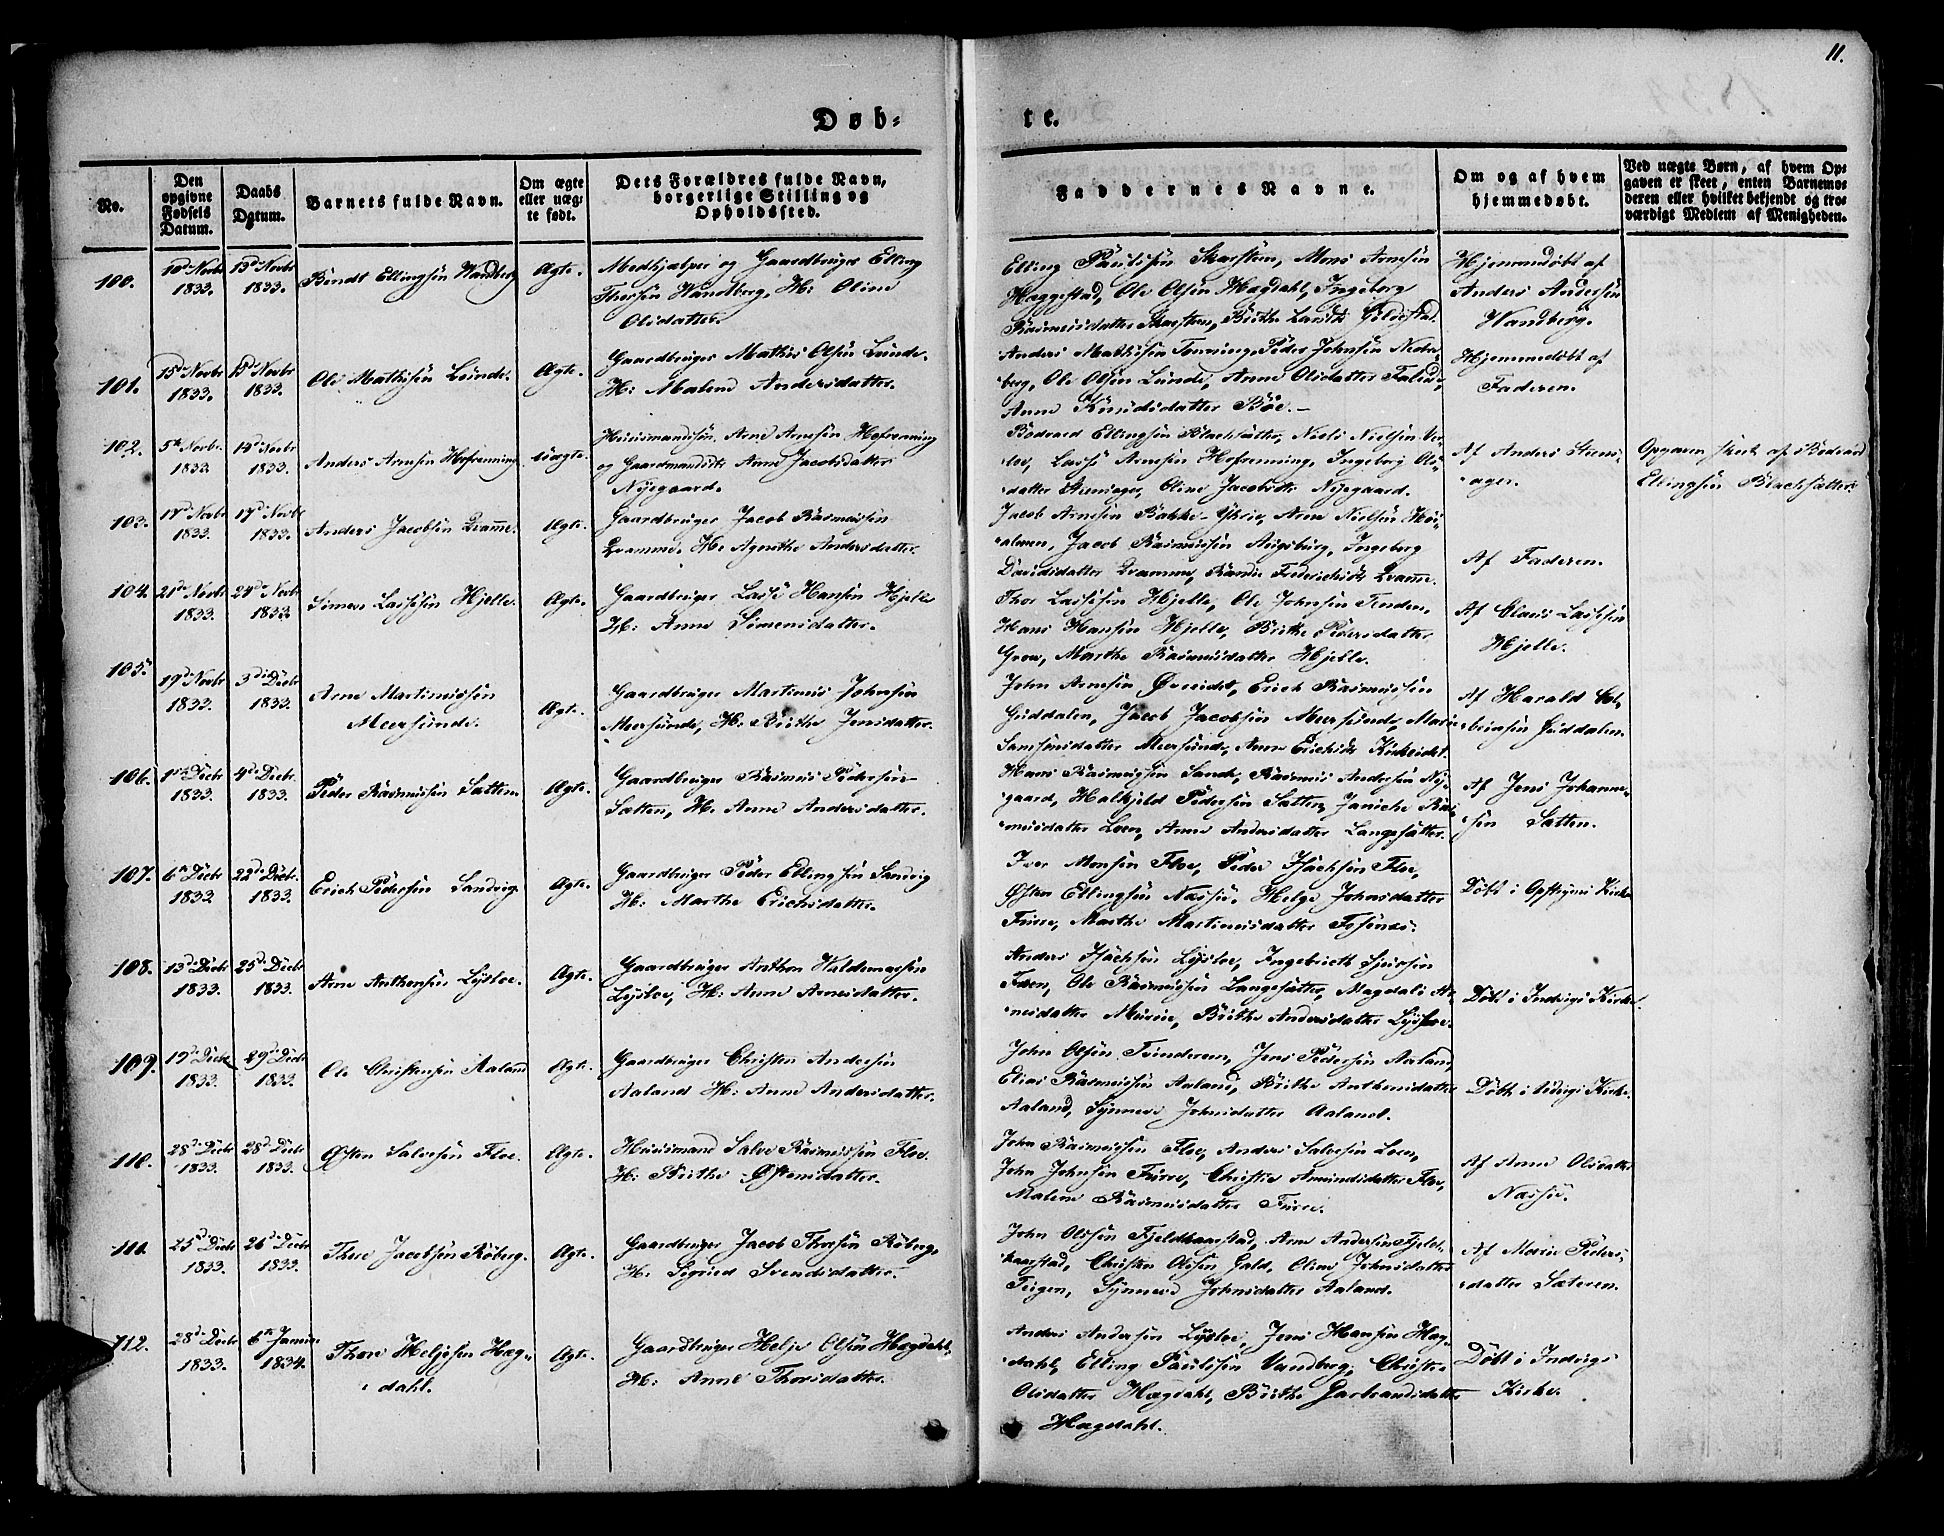 11.
Døb-
te.
No.
Den opgivne Fødsels Datum.
Daabs Datum.
Barnets fulde Navn.
Om ægte eller uæg- te født.
Dets Forældres fulde Navn, borgerlige Stilling og Opholdssted.
Faddernes Navne.
Om og af hvem hjemmedøbt.
Ved uægte Børn, af hvem Op-
gaven er skeet, enten Barnemo-
deren eller hvilket bekjendt og tro-
værdigt Medlem af Menigheden.
100.
10d Novbr 1833.
13d Novbr 1833.
Bendt Ellingsen Wandberg
Ægte.
Medhjælper og Gaardbruger Elling
Thorsen Wandberg, H: Oline
Olsdatter.
Elling Paulsen Skarsteen, Mons Arnesen
Heggestad, Ole Olsen Hagdahl, Ingeborg
Rasmusdatter Skarsteen, Brithe
Hjemmedøbt af
Anders Andersen
Wandberg.
101.
13d Novbr 1833.
15d Novbr 1833.
Ole Mathisen Lunde.
Ægte.
Gaardbruger Mathis Olsen Lunde.
H: Malene Andersdatter.
Anders Mathisen Tonning, Peder Johnsen Neds-
berg, Ole Olsen Lunde, Anne Olsdatter
Anne Knudsdatter Bøe.
Hjemmedøbt af
Faderen.
102.
5te Novbr. 1833
14d Novbr 1833.
Anders Arnesen Hofrenning
Uægte.
Huusmandssøn, Arne Arnesen Hofrenning
og Gaardmandsdtr Anne Jacobsdatter
Nygaard.
Bodvard Ellingsen Blachsætter, Niels Nielsen
Lasse Arnesen Hofrenning, Ingeborg Ols-
datter Steensager, Oline Jacobsdtr Nygaard.
Af Anders Steens-
ager.
Opgaven skeet af Bodvard
Ellingsen Blachsætter.
103.
17d Novbr 1833.
17d Novbr 1833.
Anders Jacobsen Qvamme.
Ægte.
Gaardbruger Jacob Rasmussen
Qvamme. H: Agnethe Andersdatter.
Jacob Arnesen Bakke-Yhrie, Arne Nielsen Høi-
Jacob Rasmussen Augsburg, Ingeborg
Davidsdatter Qvamme, Randi Frederichsdtr Qvamme.
Af Faderen.
104.
21d Novbr 1833.
24d Novbr 1833.
Simen Lassesen Hjelle.
Ægte.
Gaardbruger Lasse Hansen Hjelle
H: Anne Simensdatter.
Thor Lassesen Hjelle, Ole Johnsen Tenden,
Hans Hansen Hjelle, Brithe Pedersdatter
Grov, Marthe Rasmusdatter Hjelle.
Af Claus Lassesen
Hjelle.
105.
19d Novbr 1833.
3die Decbr 1833.
Arne Martinussen
Meersunde.
Ægte.
Gaardbruger Martinus Johnsen
Meersunde, H: Brithe Jensdatter.
John Arnesen Øvreeidet, Erich Rasmussen
Guddalen, Jacob Jacobsen Meersunde, Marie
Samsonsdatter Meersunde, Anne Erichsdtr Kirkeeidet.
Af Harald
Guddalen.
106.
1ste Decbr 1833.
4d Decbr 1833.
Peder Rasmussen Sætten
Ægte.
Gaardbruger Rasmus Pedersen
Sætten, H: Anne Andersdatter.
Hans Rasmussen Sande, Rasmus Andersen Ny-
gaard, Halkjeld Pedersen Sætten, Janiche Ras-
musdatter Loen, Anne Andersdatter Langesætter.
Af Jens Johanne-
sen Sætten.
107.
6te Decbr 1833
22d Decbr. 1833.
Erich Pedersen Sandvig
Ægte.
Gaardbruger Peder Ellingsen Sandvig
H: Marthe Erichsdatter.
Iver Monsen Floe, Peder Isachsen Floe,
Østen Ellingsen Næssu, Helge Johnsdatter
Furre, Marthe Martinusdatter
Døbt i Opstryns Kirke
108.
13d Decbr 1833.
25d Decbr 1833.
Arne Anthonsen Lysloe.
Ægte.
Gaardbruger Anthon Waldemarsen
Lysloe, H: Anne Arnesdatter.
Anders Isachsen Lysloe, Ingebricth Sjursen
Faen, Ole Rasmussen Langesætter, Magdali Ar-
nesdatter Muriie, Brithe Andersdatter Lysloe.
Døbt i Indvigs Kirke.
109.
17d Decbr 1833.
29d Decbr 1833.
Ole Christensen Aaland
Ægte.
Gaardbruger Christen Andersen
Aaland H: Anne Andersdatter.
John Olsen Tvinderem, Jens Pedersen Aaland,
Elias Rasmussen Aaland, Brithe Anthonsdatter
Aaland, Synneve Johnsdatter Aaland.
Døbt i Udvigs Kirke.
110.
28d Decbr 1833.
28d Decbr 1833.
Østen Salvesen Floe.
Ægte.
Huusmand Salve Rasmussen Floe.
H: Brithe Østensdatter.
John Rasmussen Floe, Anders Salvesen Loen,
John Johnsen Furre, Christie Amundsdatter Floe,
Malene Rasmusdatter Furre.
Af Anne Olsdatter
Næssu.
111.
25d Decbr 1833.
26d Decbr 1833.
Thore Jacobsen Røberg.
Ægte.
Gaardbruger Jacob Thoresen Røberg,
H: Sigried Svendsdatter.
John Olsen Fjeldkaarstad, Arne Andersen Fjeld-
kaarstad, Christen Olsen Gald, Oline Johnsdatter
Teigen, Synneve Johnsdatter Aaland.
Af Marie Peders-
datter Sæteren.
112.
28d Decbr 1833.
6te Januar 1834.
Thore Heljesen Hæg-
dahl.
Ægte.
Gaardbruger Helje Olsen Hægdahl,
H: Anne Thoresdatter.
Anders Andersen Lysloe, Jens Hansen Hæg-
dahl, Elling Paulsen Vandberg, Christen
Olsdatter Hægdahl, Brithe Garbrandsdatter
Hægdahl.
Døbt i Indvigs
Kirke.